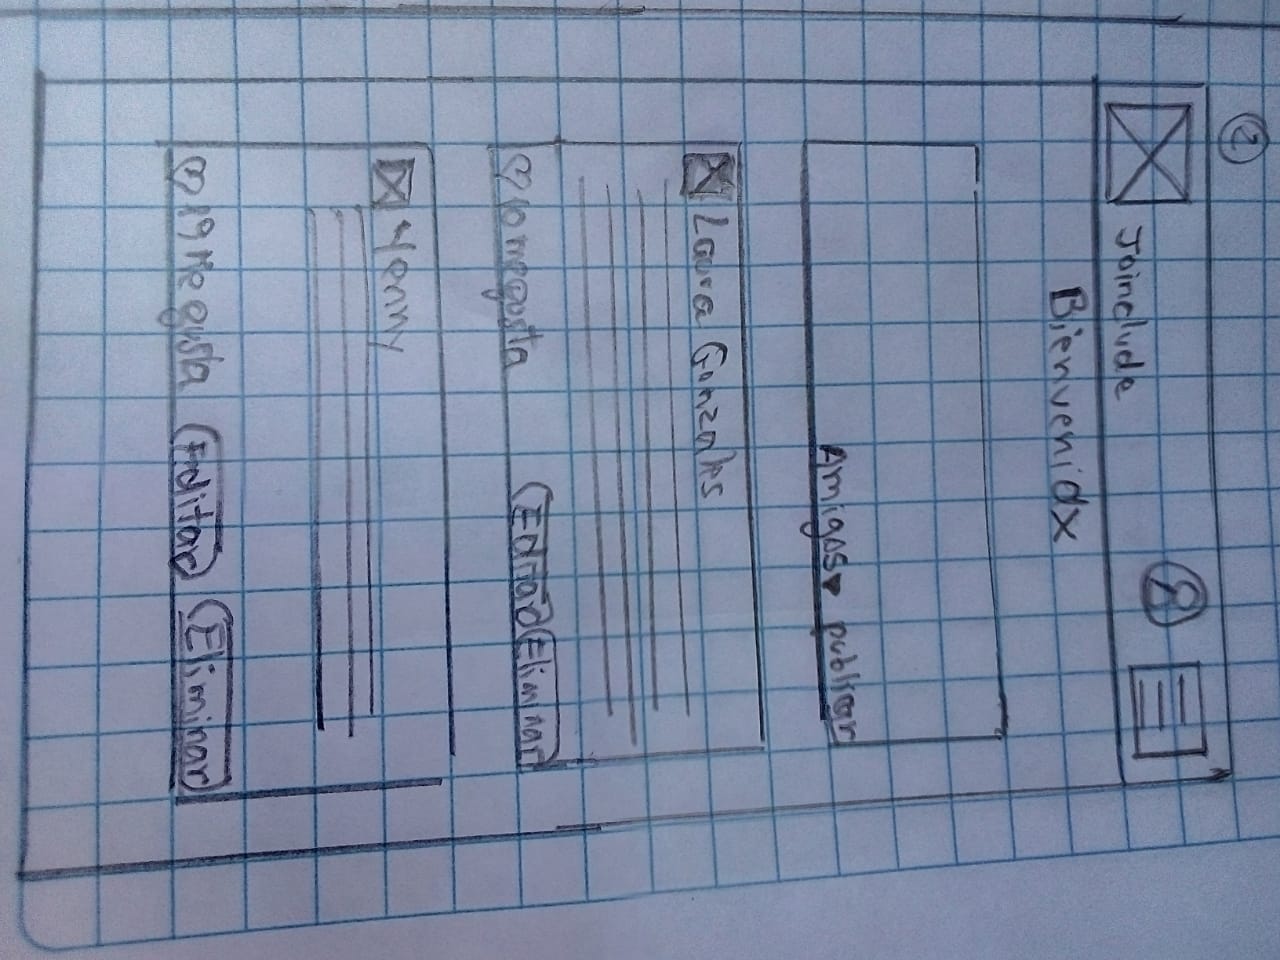 2
Joinclude
Bienvenidx
Amigos▾ publicar
Laura Gonzales
♡ 10 me gusta Editar Eliminar
Yenny
♡ 19 Me gusta Editar Eliminar